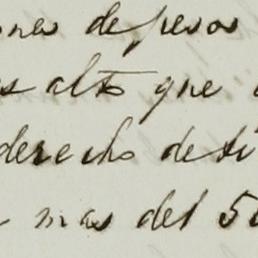 ones de pesos
s alto que
derecho de ti
mas del 50